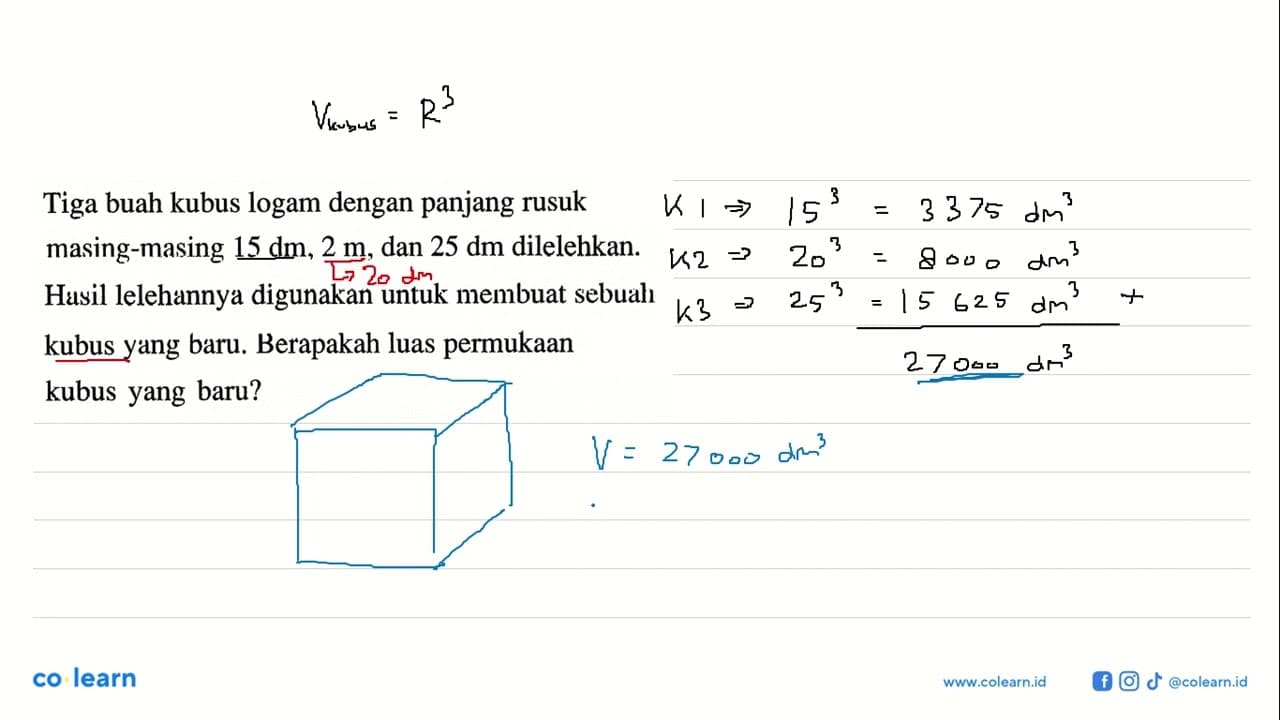 V kubus = R³
Tiga buah kubus logam dengan panjang rusuk
masing-masing 15 dm, 2 m, dan 25 dm dilelehkan.
↳ 20 dm
Hasil lelehannya digunakan untuk membuat sebuah
kubus yang baru. Berapakah luas permukaan
kubus yang baru?
K1 ⇒ 15³ = 3375 dm³
K2 ⇒ 20³ = 8000 dm³
K3 ⇒ 25³ = 15 625 dm³ +
27000 dm³
V = 27000 dm³
co learn
www.colearn.id
@colearn.id